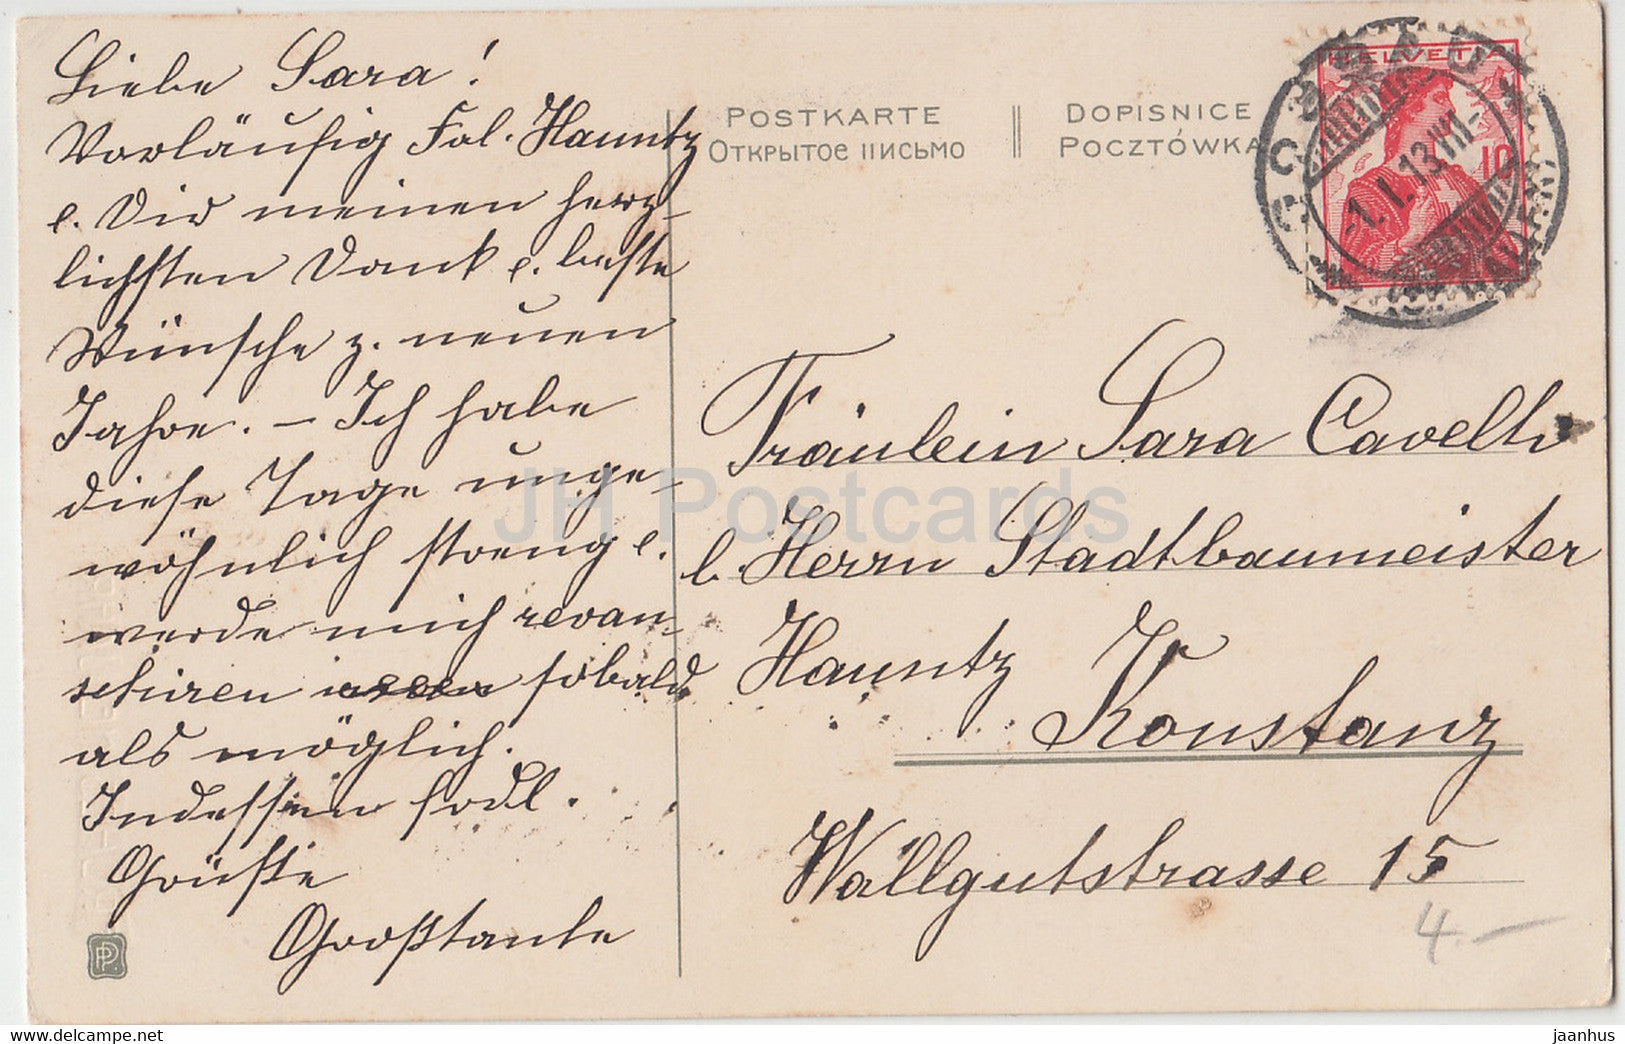 Liebe Sara!
Vorläufig Frl. Hauntz
u. Dir meinen herz-
lichsten Dank u. beste
Wünsche z. neuen
Jahre. – Ich habe
diese Tage unge-
wöhnlich streng u.
werde mich revan-
chiren sobald
als möglich.
Indessen frdl.
Grüße
Großtante
POSTKARTE
ОТКРЫТОЕ ПИСЬМО
DOPISNICE
POCZTÓWKA
HELVETIA
10
1.I.13.VIII-
Fräulein Sara Cavelti
b. Herrn Stadtbaumeister
Hauntz
Konstanz
Wallgutstrasse 15
4.—
PP
JH Postcards
www.hippostcard.com
jaanhus